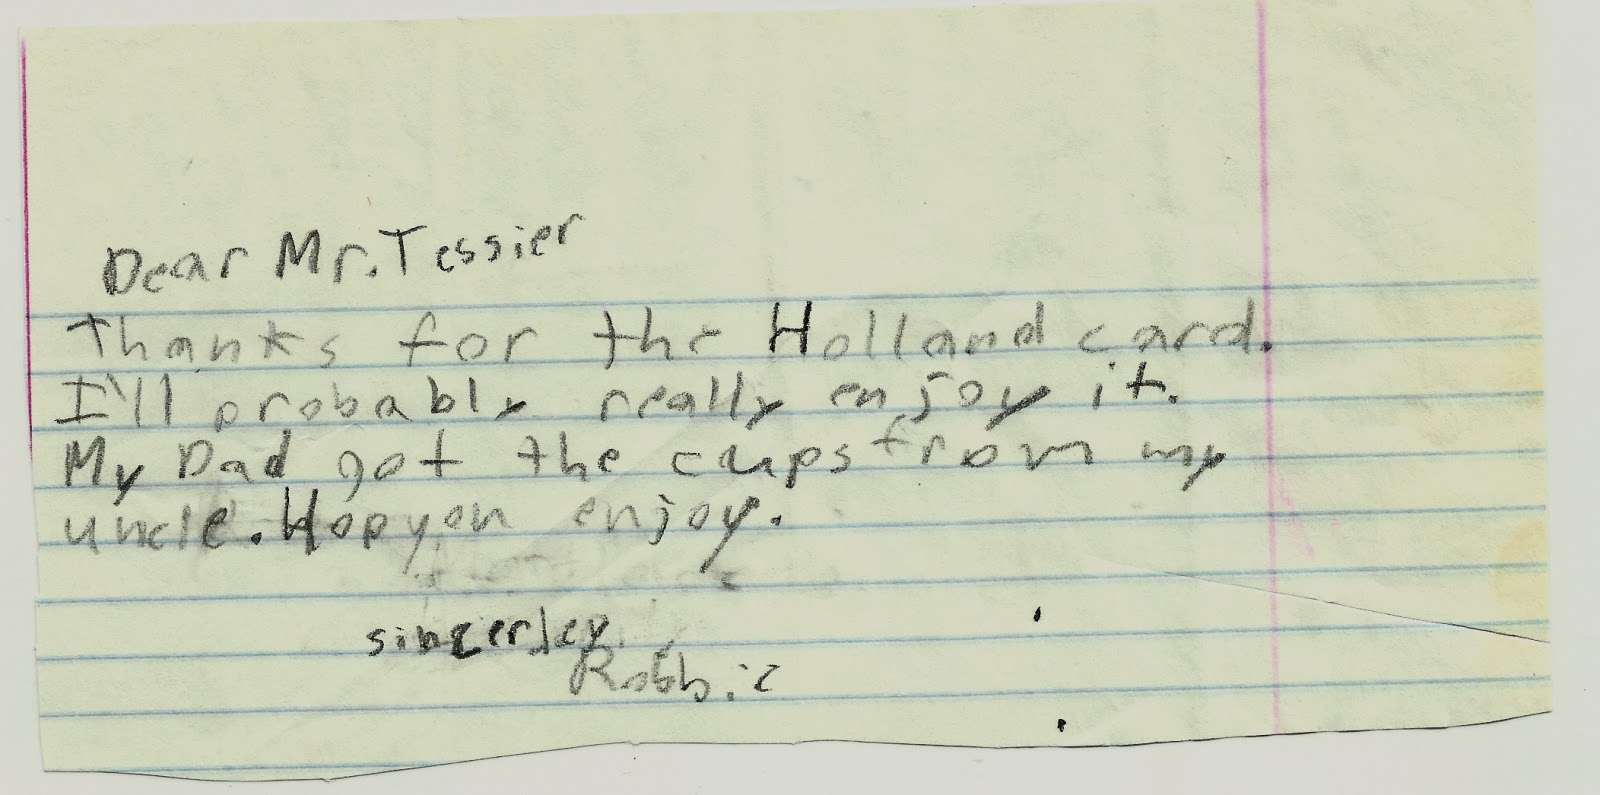 Dear Mr. Tessier
Thanks for the Holland card.
I'll probably really enjoy it.
My Dad got the caps from my
uncle. Hopyou enjoy.
sincerley,
Robbie